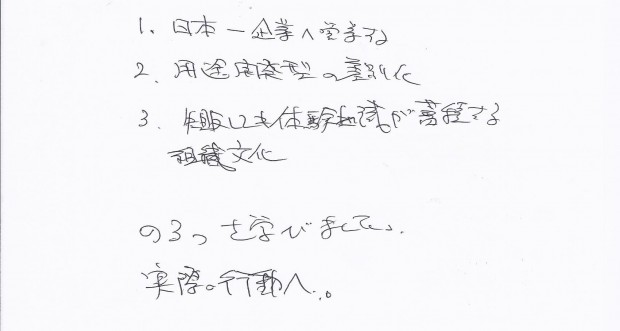 1. 日本一企業へ営業する
2. 用途開発型の差別化
3. 失敗しても体験知識が蓄積する
組織文化
の3つを学びまして、、
実際の行動へ、。